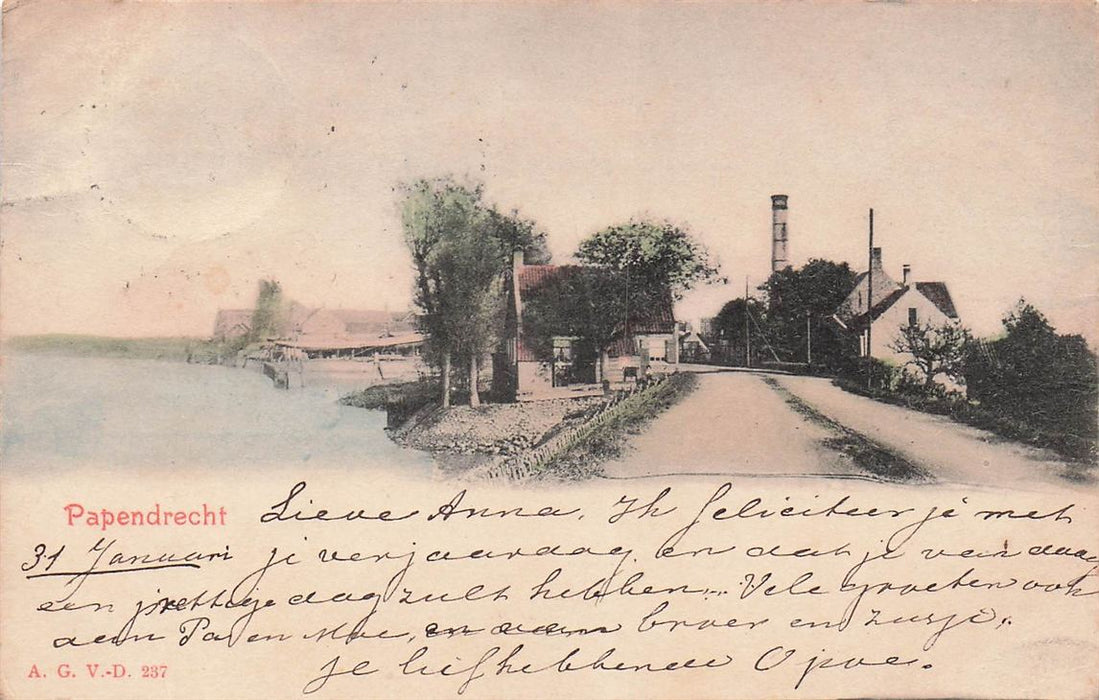 Papendrecht
Lieve Anna, Ik feliciteer je met
31 Januari je verjaardag en dat je van daag
een prettige dag zult hebben. Vele groeten ook
aan Pa en Moe, en aan broer en zusje,
je liefhebbende Opoe.
A. G. V.-D. 237